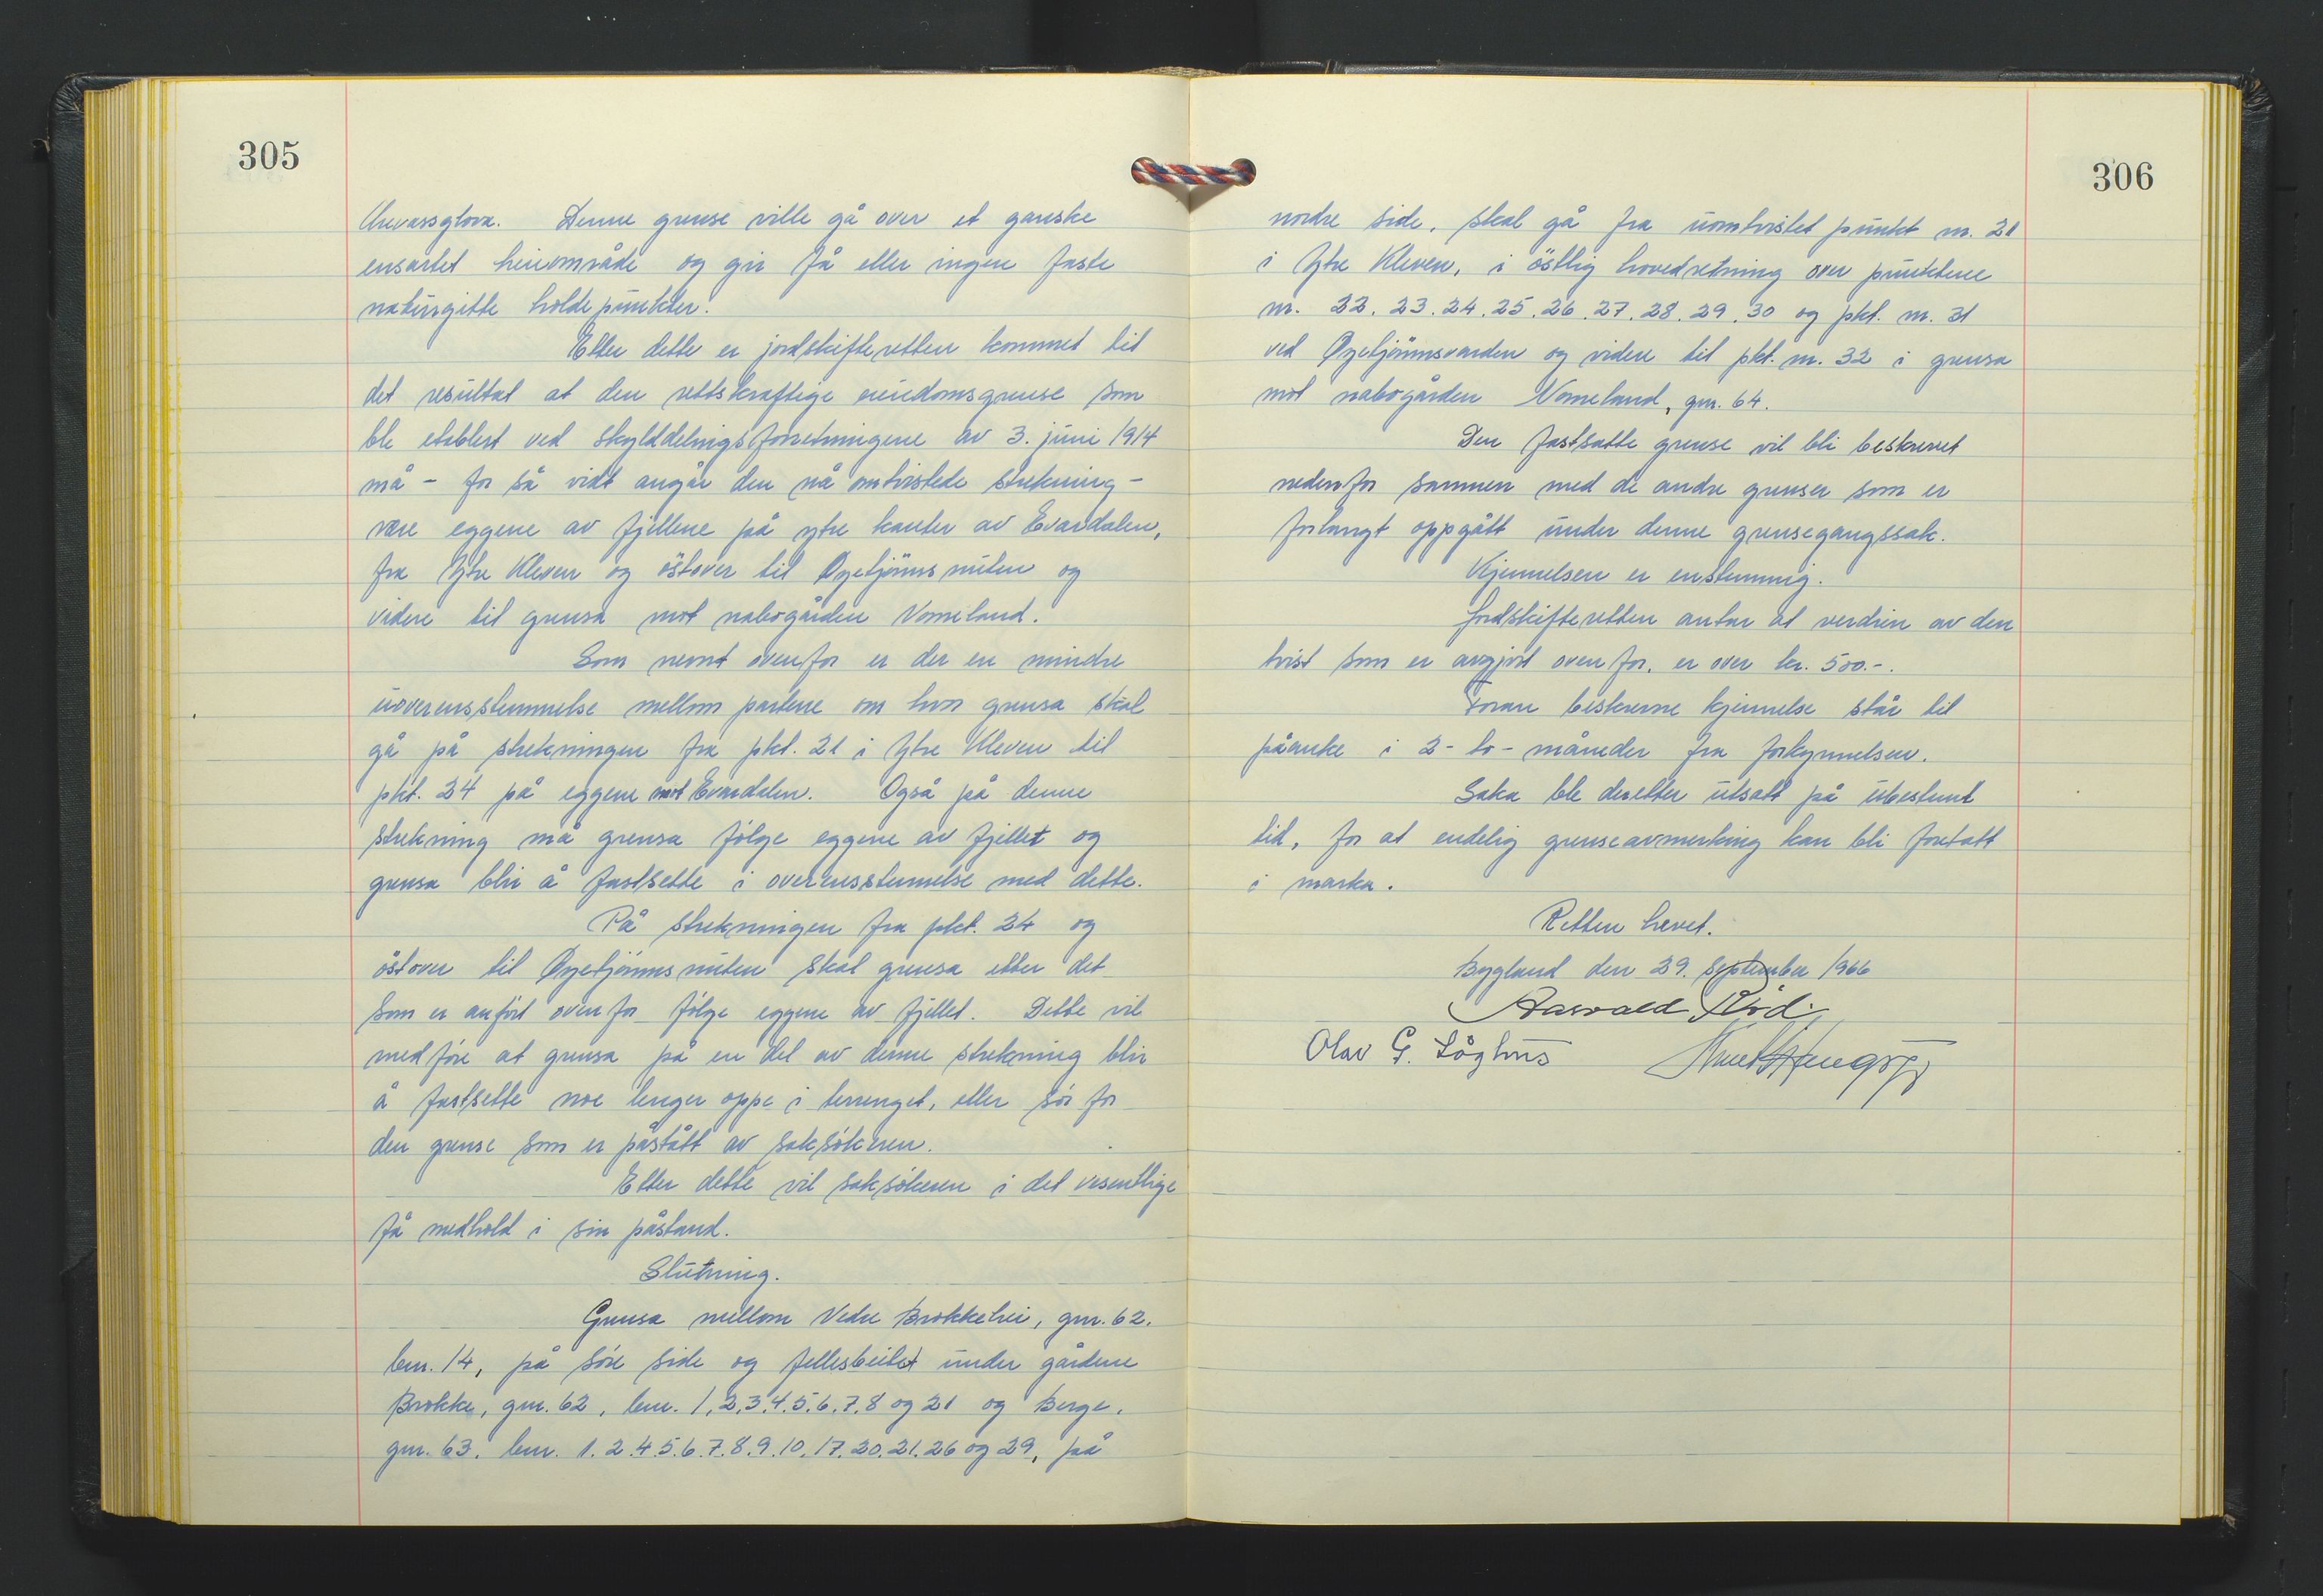 305
Denne grense ville gå over et ganske
ensartet heiområde og gir få eller ingen faste
naturgitte holdepunkter.
Etter dette er jordskifteretten kommet til
det resultat at den rettskraftige eiendomsgrense som
ble etablert ved skylddelingsforretningene av 3. juni 1914
må - for så vidt angår den nå omtvistede strekning -
være eggene av fjellene på ytre kanter av Evardalen,
fra Ytre Kleven og östover til Øyetjönnsnuten og
videre til grensa mot nabogården Nomeland.
Som nevnt ovenfor er der en mindre
uoverensstemmelse mellom partene om hvor grensa skal
gå på strekningen fra pkt. 21 i Ytre Kleven til
pkt. 24 på eggene mot Evardalen. Også på denne
strekning må grensa följe eggene av fjellet og
grensa blir å fastsette i overensstemmelse med dette.
På strekningen fra pkt. 24 og
östover til Øyetjönnsnuten skal grensa etter det
som er anfört ovenfor fölge eggene av fjellet. Dette vil
medföre at grensa på en del av denne strekning blir
å fastsette noe lenger oppe i terrenget, eller sör for
den grense som er påstått av saksökeren.
Etter dette vil saksökeren i det vesentlige
få medhold i sin påstand.
Slutning.
Grensa mellom Nedre Brokkehei, gnr. 62.
bnr. 14, på söre side og fellesbeitet under gårdene
Brokke, gnr. 62, bnr. 1,2,3,4.5.6.7.8 og 21 og Berge,
gnr. 63. bnr. 1.2.4.5.6.7.8.9.10.17.20.21.26 og 29, på
306
nordre side, skal gå fra uomtvistet punkt nr. 21
i Ytre Kleven, i östlig hovedretning over punktene
nr. 22. 23. 24. 25. 26. 27. 28. 29. 30 og pkt. nr. 31
ved Øyetjönnsvarden og videre til pkt. nr. 32 i grensa
mot nabogården Nomeland, gnr. 64.
Den fastsatte grense vil bli beskrevet
nedenfor sammen med de andre grenser som er
forlangt oppgått under denne grensegangssak.
Kjennelsen er enstemmig.
Jordskifteretten antar at verdien av den
tvist som er avgjort ovenfor, er over kr. 500.-.
Foran beskrevne kjennelse står til
påanke i 2- to - måneder fra forkynnelsen.
Saka ble deretter utsatt på ubestemt
tid, for at endelig grenseavmerking kan bli foretatt
i marka.
Retten hevet.
Bygland den 29. september 1966
Aasvald
Olav G.